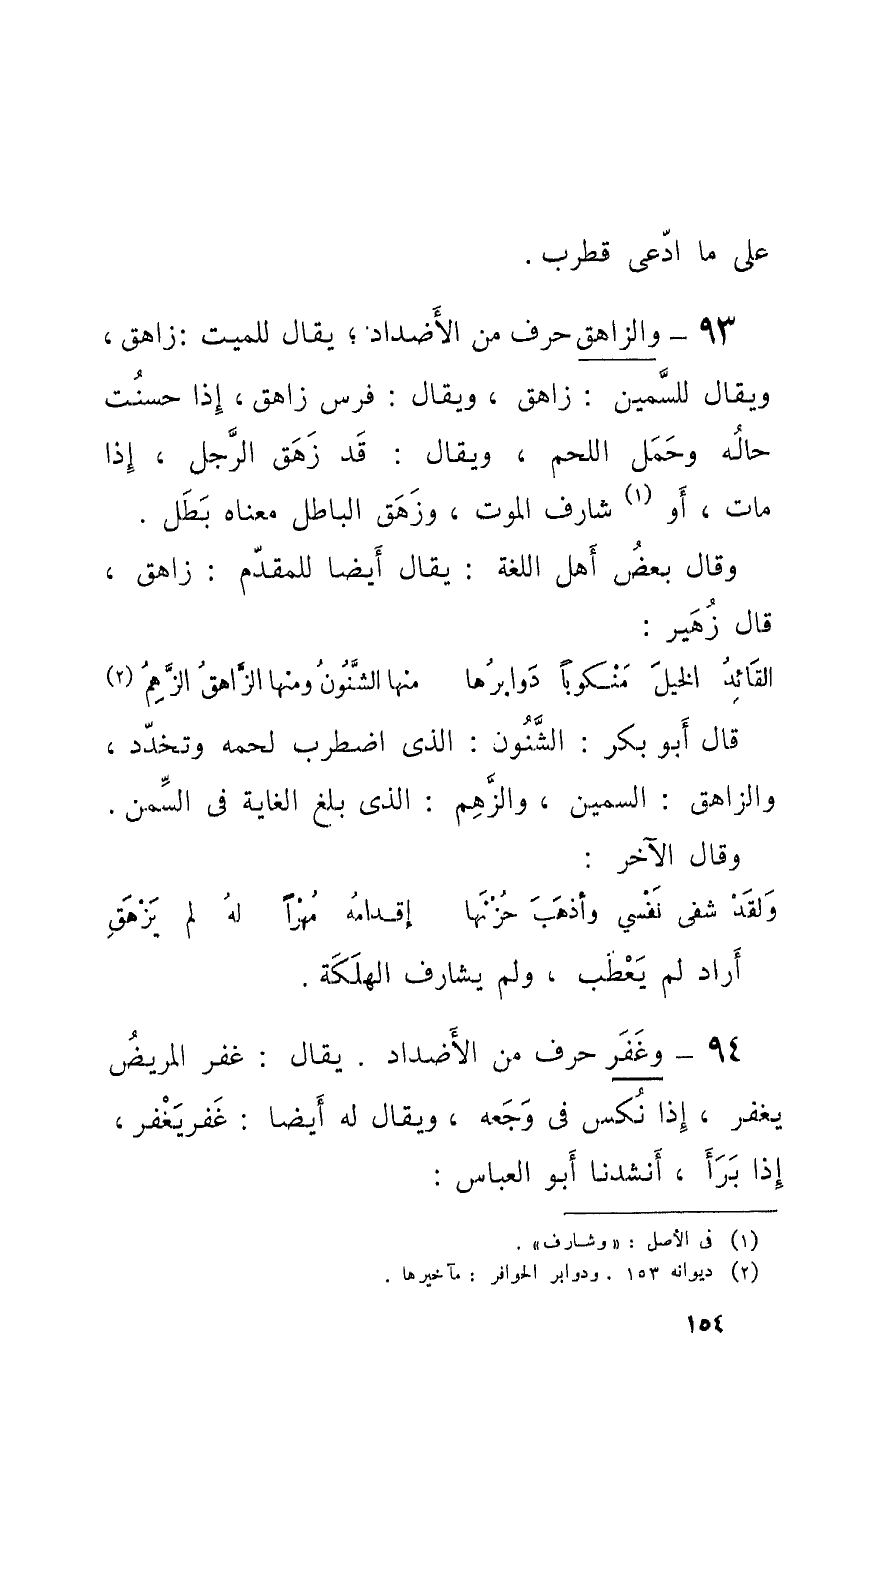 على ما ادّعى قطرب .
٩٣ – والزاهق حرف من الأَضداد ؛ يقال للميت : زاهق ،
ويقال للسَّمين : زاهق ، ويقال : فرس زاهق ، إِذا حسنُت
حالُه وحَمَل اللحم ، ويقال : قَد زَهَق الرَّجل ، إِذا
مات ، أَو (١) شارف الموت ، وزَهَق الباطل معناه بَطَل .
وقال بعضُ أَهل اللغة : يقال أَيضا للمقدّم : زاهق ،
قال زُهَير :
القَائِدُ الخيلَ مَنْكوباً دَوابرُها منها الشَّنُونُ ومنها الزَّاهقُ الزَّهِمُ (٢)
قال أَبو بكر : الشَّنُون : الذى اضطرب لحمه وتخدّد ،
والزاهق : السمين ، والزَّهِم : الذى بلغ الغاية فى السِّمن .
وقال الآخر :
وَلقَدْ شفى نَفْسي وأذهَبَ حُزْنَها إقدامُه مُهْراً لهُ لم يَزْهَقِ
أَراد لم يَعْطَب ، ولم يشارف الهلَكَة .
٩٤ – وغَفَر حرف من الأَضداد . يقال : غفر المريضُ
يغفر ، إِذا نُكس فى وَجَعه ، ويقال له أَيضا : غَفر يَغْفر ،
إِذا بَرَأَ ، أَنشدنا أَبو العباس :
(١) فى الأصل : «وشارف» .
(٢) ديوانه ١٥٣ . ودوابر الحوافر : مآخيرها .
١٥٤